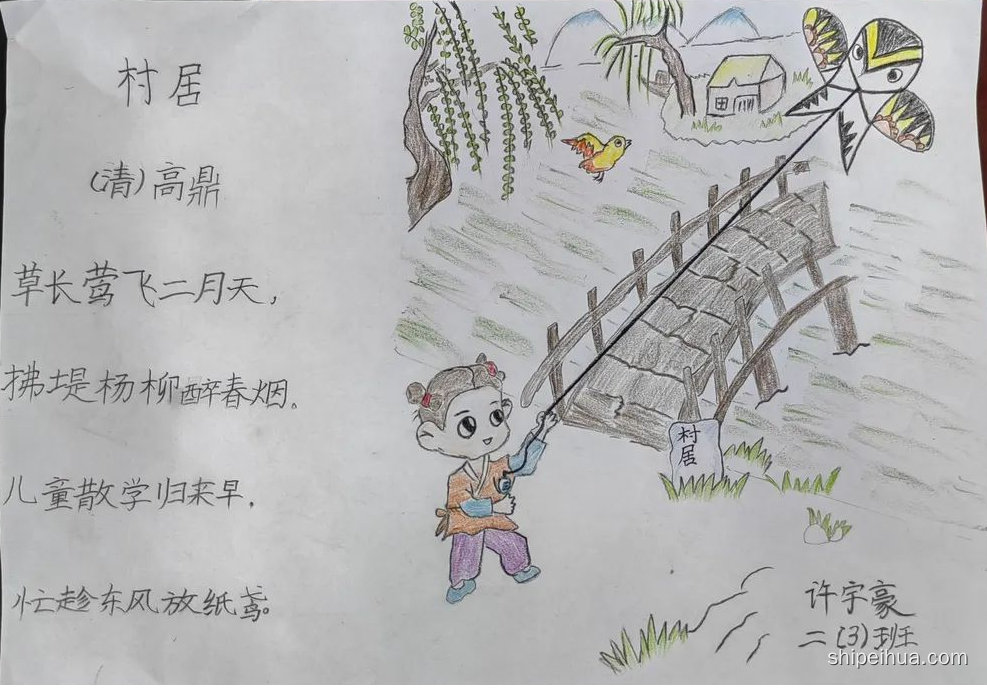 村居
(清)高鼎
草长莺飞二月天，
拂堤杨柳醉春烟。
儿童散学归来早，
忙趁东风放纸鸢。
村
居
许宇豪
二(3)班
shipeihua.com